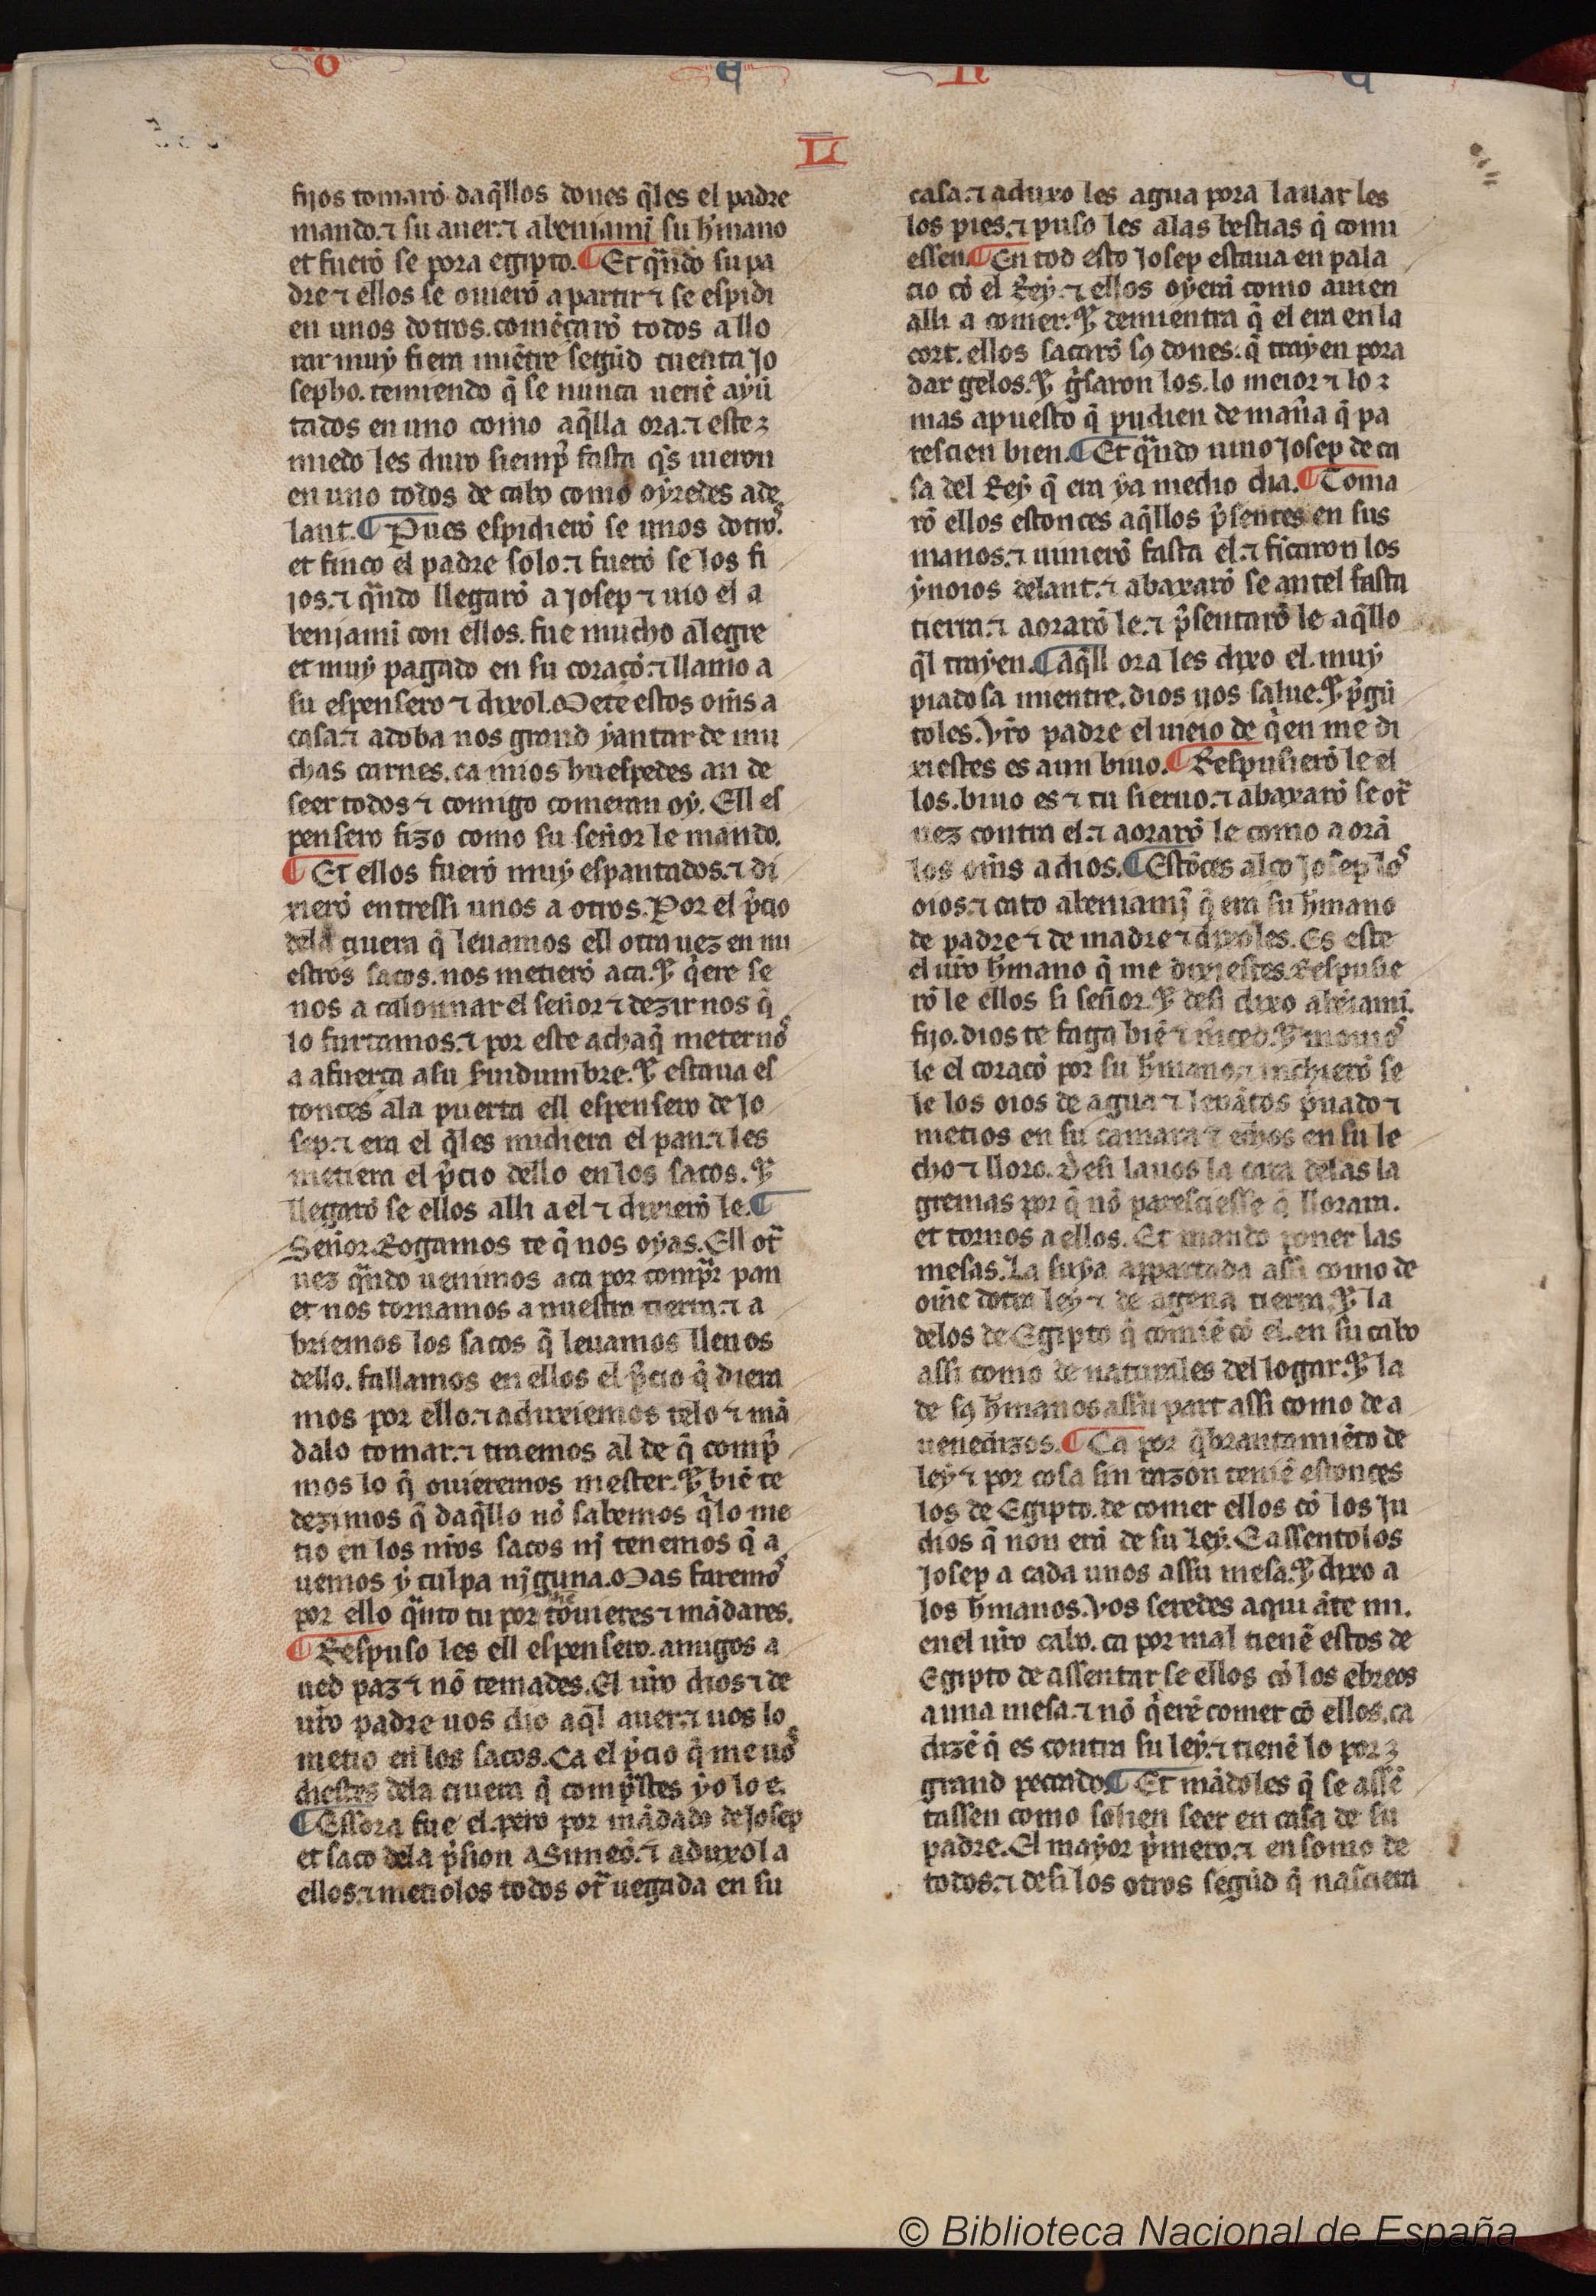 G E N E
LI
fijos tomarõ daq̃llos dones q̃les el padre
mando. ⁊ su auer. ⁊ abeniamĩ su h̃mano
et fuerõ se pora egipto. ¶ Et q̃ndo su pa
dre ⁊ ellos se ouierõ a partir ⁊ se espidi
en unos dotros. comẽçarõ todos a llo
rar muy fiera miẽtre segũd cuenta Jo
sepho. temiendo q̃ se nunca ueriẽ ayũ
tados en uno como aq̃lla ora. ⁊ este
miedo les duro siemp̃ fasta q̃s uieron
en uno todos de cabo como oyredes ade
lant. ¶ Pues espidierõ se unos dotros.
et finco el padre solo. ⁊ fuerõ se los fi
jos. ⁊ q̃ndo llegarõ a Josep ⁊ uio el a
beniamĩ con ellos. fue mucho alegre
et muy pagado en su coraçõ. ⁊ llamo a
su espensero ⁊ dixol. Mete estos om̃s a
casa. ⁊ adoba nos grand yantar de mu
chas carnes. ca mios huespedes an de
seer todos ⁊ comigo comeran oy. Ell es
pensero fizo como su señor le mando.
¶ Et ellos fuerõ muy espantados. ⁊ di
xierõ entressi unos a otros. Por el p̃cio
dela ciuera q̃ leuamos ell otra uez en nu
estros sacos. nos metierõ aca. ⁊ q̃ere se
nos a calonnar el señor ⁊ dezir nos q̃
lo furtamos. ⁊ por este achaq̃ meternos
a afuerça asu suidumbre. ⁊ estaua es
tonces ala puerta ell espensero de Jo
sep. ⁊ era el q̃les midiera el pan. ⁊ les
metiera el p̃cio dello en los sacos. ⁊
llegarõ se ellos alli a el ⁊ dixierõ le. ¶
Señor. Rogamos te q̃ nos oyas. Ell ot̃
uez q̃ndo uenimos aca por comp̃r pan
et nos tornamos a nuestra tierra. ⁊ a
briemos los sacos q̃ leuamos llenos
dello. fallamos en ellos el p̃cio q̃ diera
mos por ello. ⁊ aduxiemos telo ⁊ mã
dalo tomar. ⁊ traemos al de q̃ comp̃
mos lo q̃ ouieremos mester. ⁊ biẽ te
dezimos q̃ daq̃llo nõ sabemos q̃lo me
tio en los nr̃os sacos nj tenemos q̃ a
uemos y culpa njguna. Mas faremos
por ello q̃nto tu por touieres ⁊ mãdares.
¶ Respuso les ell espensero. amigos a
ued paz ⁊ nõ temades. El ur̃o dios ⁊ de
ur̃o padre uos dio aq̃l auer. ⁊ uos lo
metio en los sacos. Ca el p̃cio q̃ me uos
diestes dela ciuera q̃ comp̃stes yo lo e.
¶ Essora fue el. pero por mãdado de Josep
et saco dela p̃sion a Simeõ. ⁊ aduxol a
ellos. ⁊ metiolos todos ot̃ uegada en su
casa. ⁊ aduxo les agua pora lauar les
los pies. ⁊ puso les alas bestias q̃ comi
essen. ¶ En tod esto Josep estaua en pala
cio cõ el Rey. ⁊ ellos oyerã como auien
alli a comer. ⁊ demientra q̃ el era en la
cort. ellos sacarõ sꝯ dones. q̃ trayen pora
dar gelos. ⁊ g̃saron los. lo meior ⁊ lo
mas apuesto q̃ pudien de mañа q̃ pa
rescien bien. ¶ Et q̃ndo uino Josep de ca
sa del Rey q̃ era ya medio dia. ¶ Toma
rõ ellos estonces aq̃llos p̃sentes en sus
manos. ⁊ uinierõ fasta el. ⁊ ficaron los
ynoios delant. ⁊ abaxarõ se antel fasta
tierra. ⁊ aorarõ le. ⁊ p̃sentarõ le aq̃llo
q̃l trayen. ¶ Aq̃ll ora les dixo el. muy
piadosa mientre. dios uos salue. ⁊ p̃gũ
toles. Vr̃o padre el uieio de q̃en me di
xiestes es aun biuo. ¶ Respusierõ le el
los. biuo es ⁊ tu sieruo. ⁊ abaxarõ se ot̃
uez contra el. ⁊ aorarõ le como aorã
los om̃s a dios. ¶ Estõces alço Josep los
oios. ⁊ cato abeniamj̃ q̃ era su h̃mano
de padre ⁊ de madre ⁊ dixoles. Es este
el ur̃o h̃mano q̃ me dixiestes. Respusie
rõ le ellos si señor. ⁊ desi dixo abẽiami.
fijo. dios te faga biẽ ⁊ m̃ced. ⁊ mouios
le el coraçõ por su h̃mano. ⁊ inchierõ se
le los oios de agua ⁊ leuãtos p̃uado ⁊
metios en su camara ⁊ echos en su le
cho ⁊ lloro. Desi lauos la cara delas la
gremas por q̃ nõ paresciesse q̃ lloraua.
et tornos a ellos. Et mando poner las
mesas. La suya appartada assi como de
om̃e dotra ley ⁊ de agena tierra. ⁊ la
delos de Egipto q̃ comiẽ cõ el. en su cabo
assi como de naturales del logar. ⁊ la
de sꝯ h̃manos assu part assi como de a
uenedizos. ¶ Ca por q̃brantamiẽto de
ley ⁊ por cosa sin razon teniẽ estonces
los de Egipto. de comer ellos cõ los Ju
dios q̃ non erã de su ley. E assentolos
Josep a cada unos assu mesa. ⁊ dixo a
los h̃manos. Vos seredes aqui ãte mi.
enel ur̃o cabo. ca por mal tienẽ estos de
Egipto de assentar se ellos cõ los ebreos
a una mesa. ⁊ nõ q̃erẽ comer cõ ellos. ca
dizẽ q̃ es contra su ley. ⁊ tienẽ lo por
grand peccado. ¶ Et mãdoles q̃ se assẽ
tassen como solien seer en casa de su
padre. El mayor p̃mero. ⁊ en somo de
todos. ⁊ desi los otros segũd q̃ nasciera
© Biblioteca Nacional de España